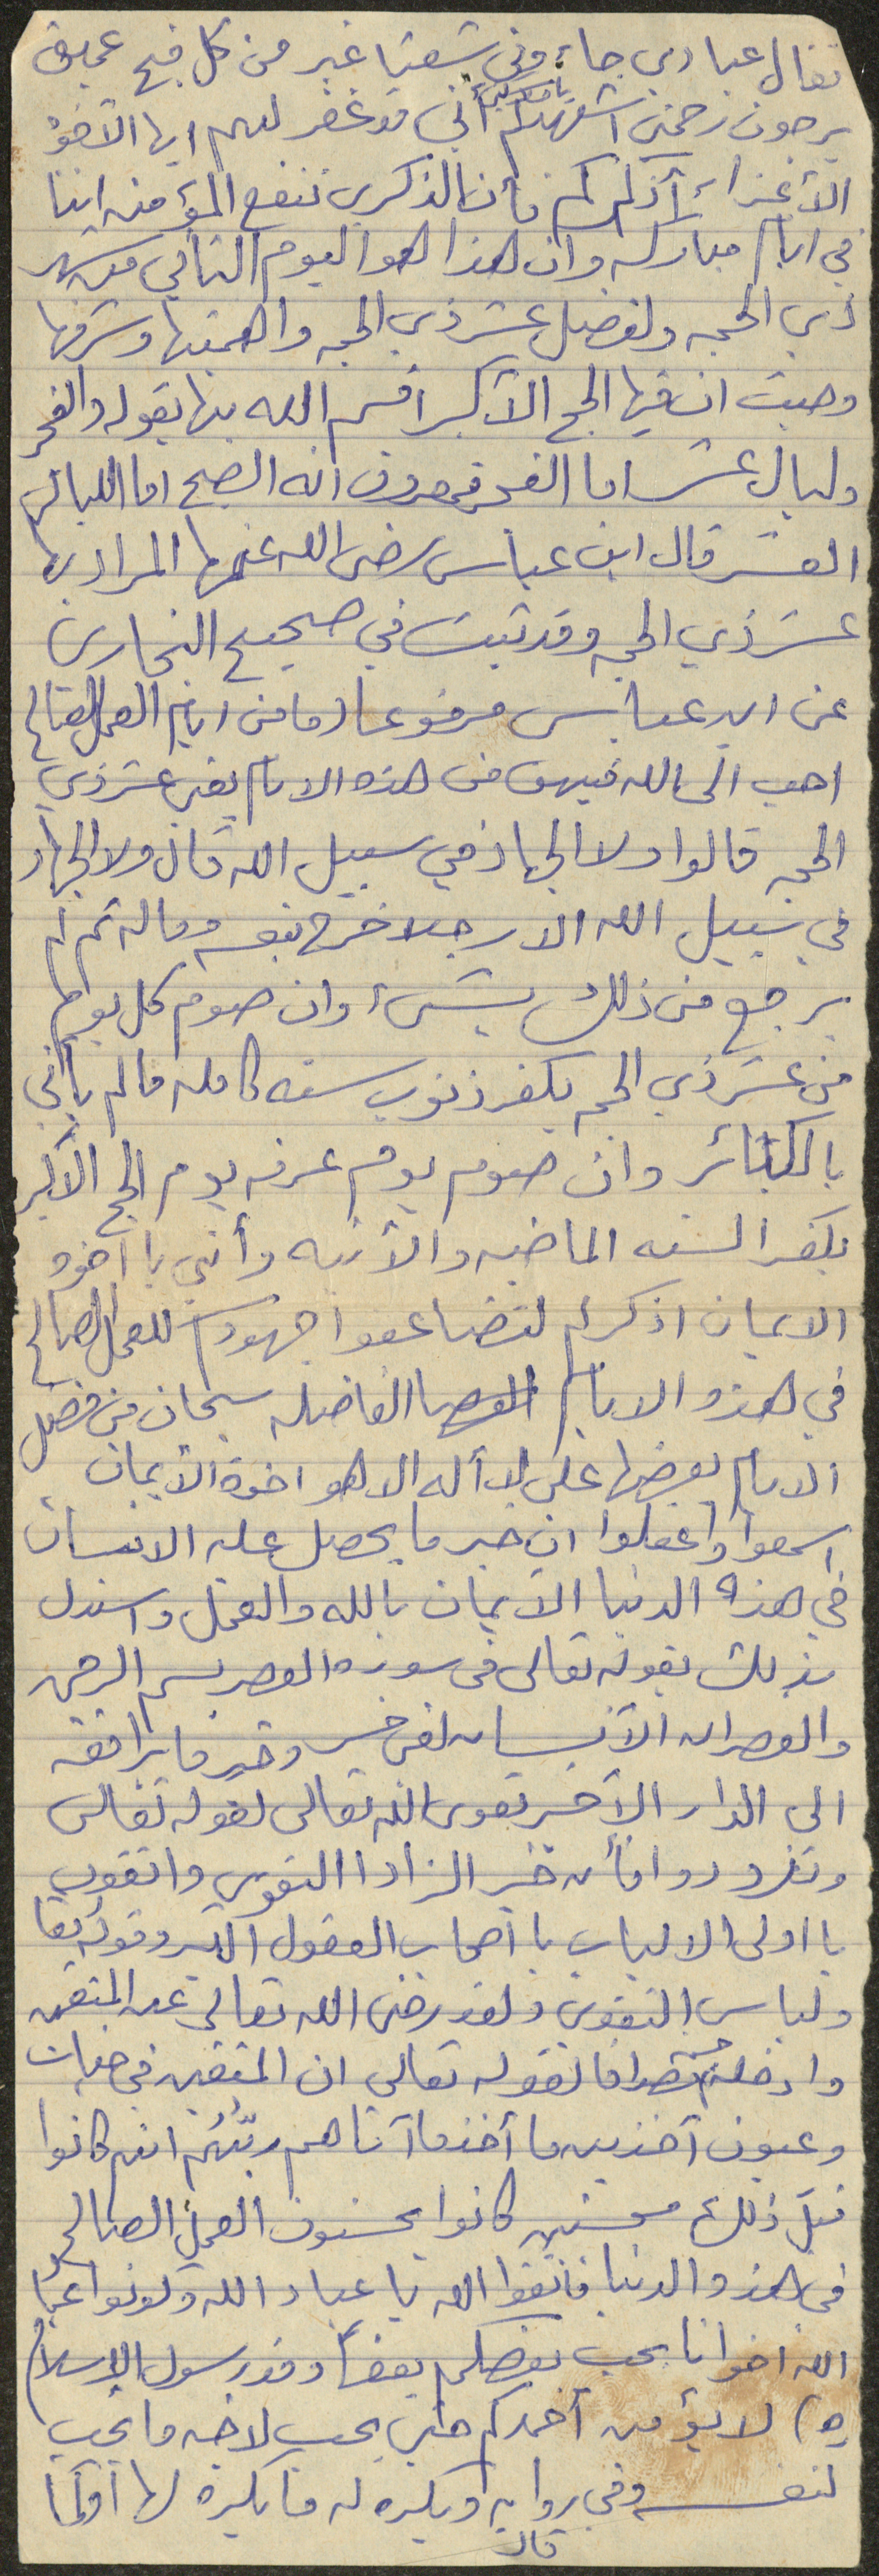 فقال عبادي جاءوني شعثا غبر من كل فج عميق
يرجون رحمتي اشهدكم يا ملائكتي أني قد غفر لهم ايها الأخوة
الأعزاء أذكركم فأن الذكرى تنفع المؤمنين اننا
في ايام مباركه وان هذا هو اليوم الثاني من شهر
ذي الحجه ولفضل عشر ذي الحجه واهميتها وشرفها
وحيث ان فيها الحج الأكبر اقسم الله بها بقوله والفجر
وليال عشر اما الفجر فمعروف انه الصبح اما الليالي
العشر قال ابن عباس رضى الله عنهما المراد بها
عشر ذي الحجه وقد ثبت في صحيح البخاري
عن ابن عباس مرفوعا (ما من ايام العمل الصالح
احب الى الله فيهن من هذه الايام يعني عشر ذي
الحجه قالوا ولا الجهاد في سبيل الله قال ولا الجهاد
في سبيل الله الا رجلا خرج بنفسه وماله ثم لم
يرجع من ذلك بشىء وان صوم كل يوم
من عشر ذي الحجه يكفر ذنوب سنه كامله مالم يأتي
بالكبائر وان صوم يوم عرفه يوم الحج الأكبر
يكفر السنه الماضيه والأتيه وأنني يا أخوه
الايمان اذكركم لتضاعفوا جهودكم للعمل الصالح
في هذه الايام الفاضله سبحان من فضل
الايام بعضها على لا أله الا هو اخوة الأيمان
اسمعوا واعقلوا ان خير ما يحصل عليه الانسان
في هذه الدنيا الأيمان بالله والعمل واستدل
بذلك بقوله تعالى في سوره العصر بسم الرحمن
والعصر ان الأنسان لفي خسر وخير ما يرافقه
الى الدار الأخر تقوى الله تعالى لقوله تعالى
وتزودوا فأن خير الزاد التقوى واتقون
يا اولى الالباب يا أصحاب العقول وقوله تعا
ولباس التقوى ولقد رضى الله تعالى عن المتقين
وادخلهم لقوله تعالى ان المتقين في جنات
وعيون آخذين ما أتاهم ربّهُم انهم كانوا
قبل ذلك محسنين كانوا يحسنون العمل الصالح
في هذه الدنيا فاتقوا الله يا عباد الله وكونوا عبا
الله اخوانا يحب بعضكم بعضاً وقد رسول الاسلام
(ص) لا يؤمن أحدكم حتى يحب لاخيه ما يحب
لنفسه وفي روايه ويكره له ما يكره لها
قال